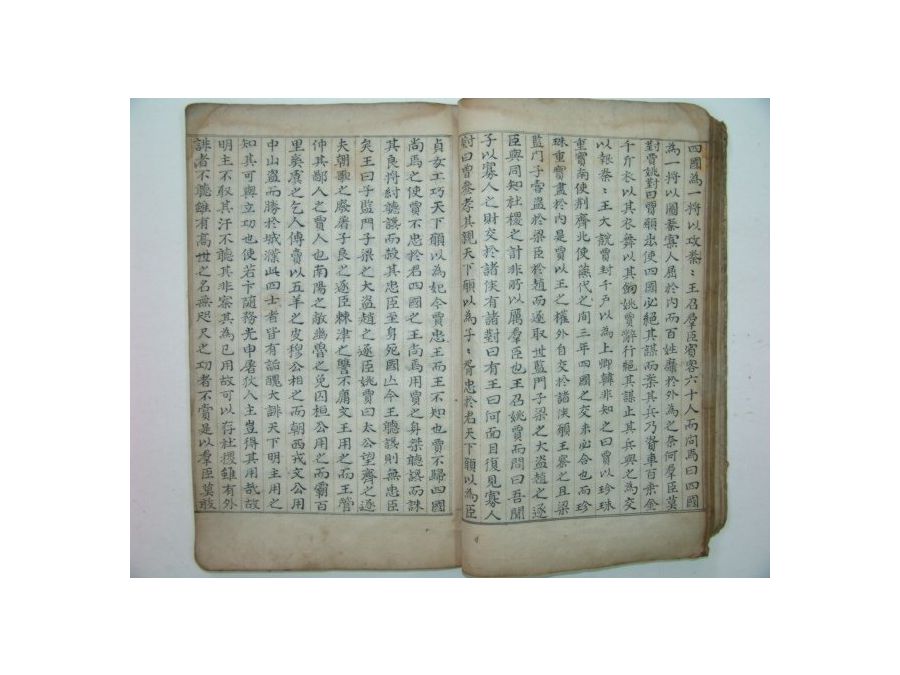 四國為一將以攻秦秦王召羣臣賓客六十人而問焉曰四國
為一將以圖秦寡人屈於內而百姓靡於外為之奈何羣臣莫
對賈姚對曰賈願出使四國必絕其謀而案其兵乃資車百乘金
千斤衣以其衣舞以其劍姚賈辭行絕其謀止其兵與之為交
以報秦秦王大說賈封千戶以為上卿韓非知之曰賈以珍珠
重寶南使荊齊北使燕代之間三年四國之交未必合也而珍
珠重寶盡於內是賈以王之權外自交於諸侯願王察之且梁
監門子嘗盜於梁臣於趙而逐取世監門子梁之大盜趙之逐
臣與同知社稷之計非所以厲羣臣也王召姚賈而問曰吾聞
子以寡人之財交於諸侯有諸對曰有王曰何面目復見寡人
對曰曾參孝其親天下願以為子子胥忠於君天下願以為臣
貞女工巧天下願以為妃今賈忠王而王不知也賈不歸四國
尚焉之使賈不忠於君四國之王尚焉用賈之身桀聽讒而誅
其良將紂聽讒而殺其忠臣至身死國亾今王聽讒則無忠臣
矣王曰子監門子梁之大盜趙之逐臣姚賈曰太公望齊之逐
夫朝歌之廢屠子良之逐臣棘津之讐不庸文王用之而王管
仲其鄙人之賈人也南陽之敝幽魯之免囚桓公用之而霸百
里奚虞之乞人傳賣以五羊之皮穆公相之而朝西戎文公用
中山盜而勝於城濮此四士者皆有詬醜大誹天下明主用之
知其可與立功也使若卞隨務光申屠狄人主豈得其用哉故
明主不取其汗不聽其非察其為已用故可以存社稷雖有外
誹者不聽雖有高世之名無咫尺之功者不賞是以羣臣莫敢